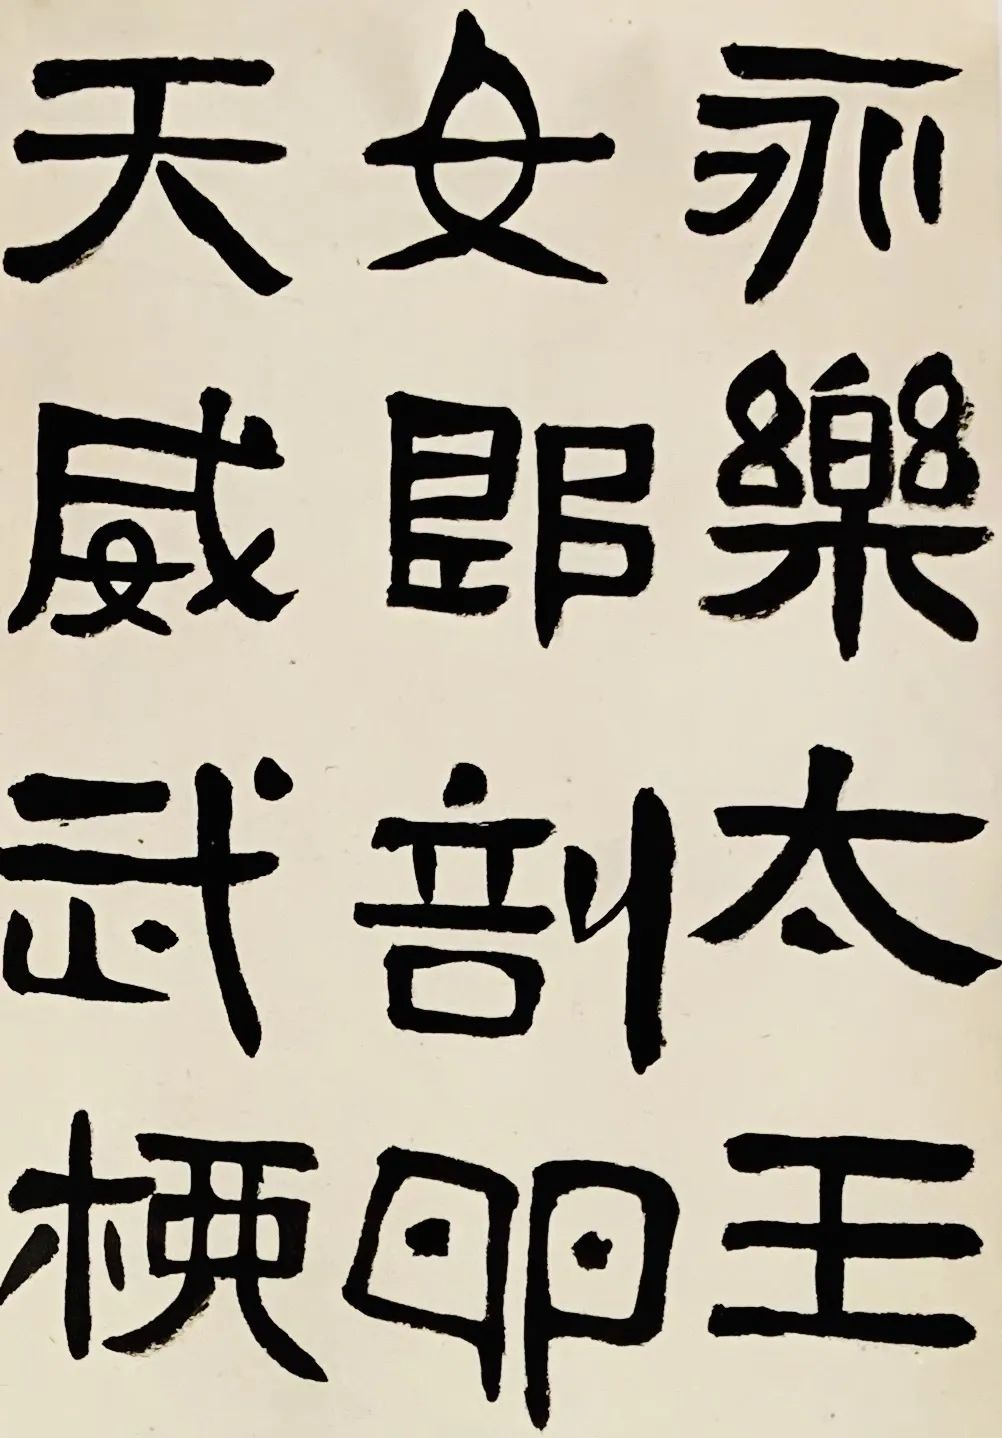 永樂太王
女郎剖卵
天威武